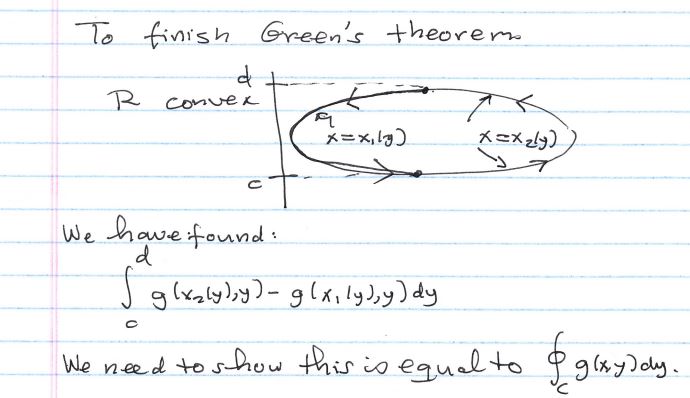 To finish Green's theorem
d
R convex
x=x₁(y)
x=x₂(y)
c
We have found:
∫_c^d g(x₂(y),y) - g(x₁(y),y) dy
We need to show this is equal to ∮_C g(x,y) dy.